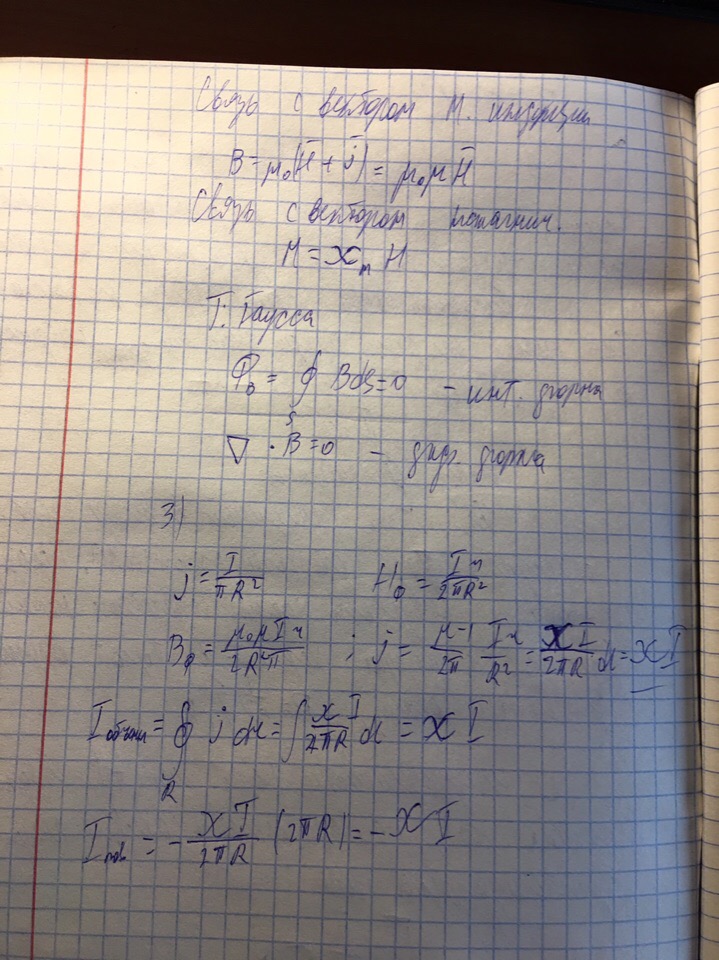 Связь с вектором м. индукции
B = μ₀(H̄ + j̄) = μ₀μH̄
Связь с вектором
M = χₘ H
Т. Гаусса
Φ_B = ∮_S Bds = 0 – инт. форма
∇ · B = 0 – диф. форма
3)
j = I/πR² H_φ = Ir/2πR²
B_φ = μ₀μIr/2R²π ; j = μ-1/2π Ir/R² = χI/2πR dl = χI
I объемн = ∮_R j dl = ∫ χI/2πR dl = χ I
I пов = - χI/2πR (2πR) = - χ I